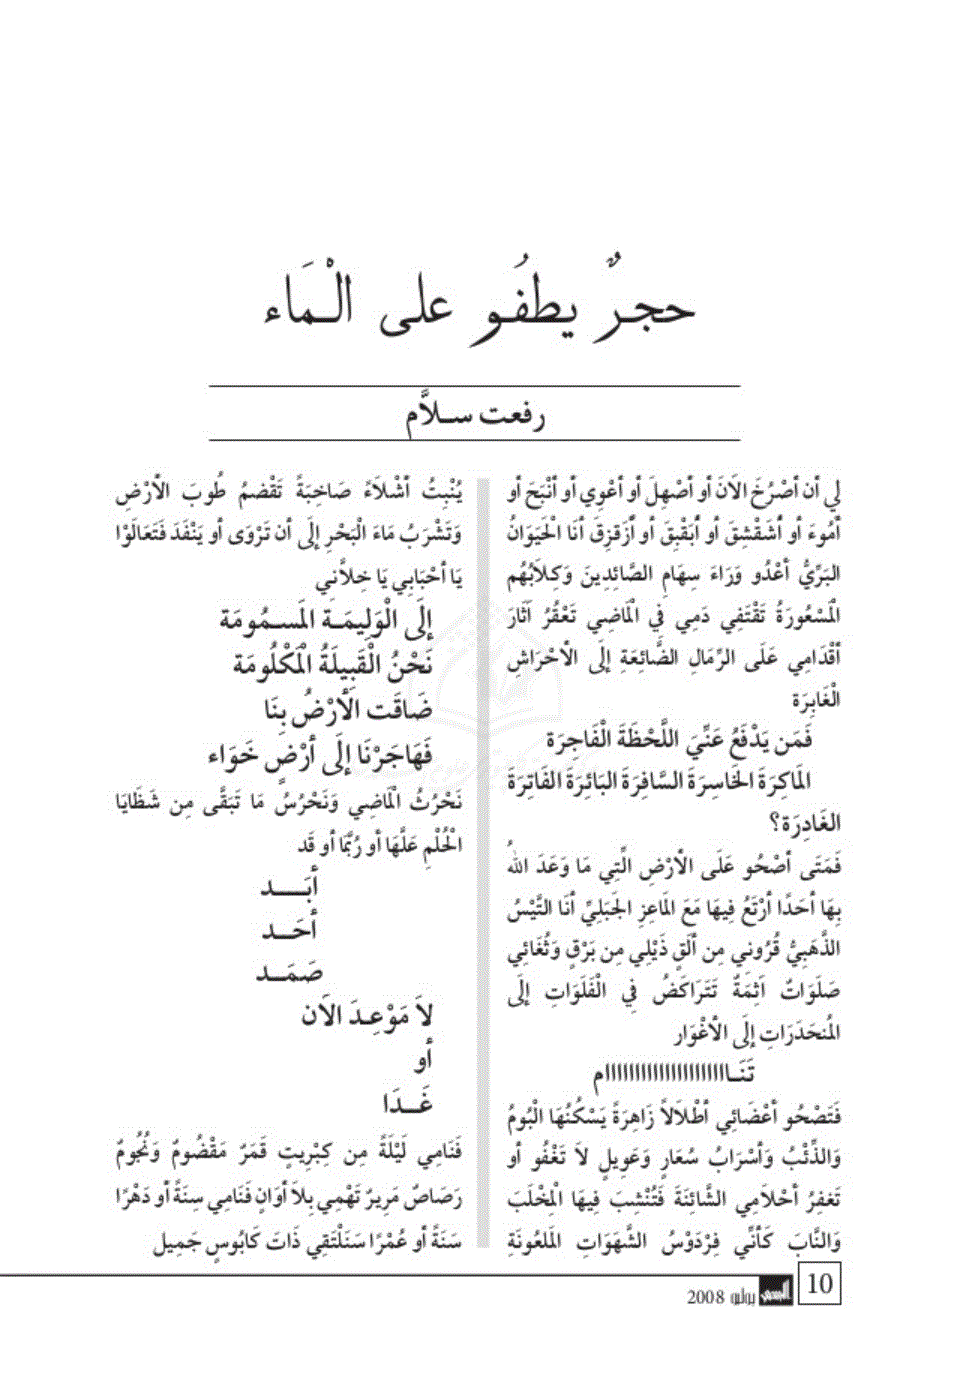 حجرٌ يطفُو على الْمَاء
رفعت سلاَّم
لِي أن أصْرُخَ الآنَ أو أصْهِلَ أو أعْوِي أو أنْبَحَ أو
أمُوءَ أو أشَقْشِقَ أو أبَقْبِقَ أو أزَقزِقَ أنَا الْحَيَوَانُ
البَرِّيُّ أعْدُو وَرَاءَ سِهَامِ الصَّائِدِينَ وَكِلاَبُهُم
الْمَسْعُورَةُ تَقْتَفِي دَمِي فِي الْمَاضِي تَعْقُرُ آثَارَ
أقْدَامِي عَلَى الرِّمَالِ الضَّائِعَةِ إلَى الأحْرَاشِ
الْغَابِرَة
فَمَن يَدْفَعُ عَنِّيَ اللَّحْظَةَ الْفَاجِرَة
الْمَاكِرَةَ الْخَاسِرَةَ السَّافِرَةَ البَائِرَةَ الفَاتِرَةَ
الغَادِرَة؟
فَمَتَى أصْحُو عَلَى الأرْضِ الَّتِي مَا وَعَدَ اللهُ
بِهَا أحَدًا أرْتَعُ فِيهَا مَعَ الْمَاعِزِ الْجَبَلِيِّ أنَا التَّيْسُ
الذَّهَبِيُّ قُرُونِي مِن ألَقٍ ذَيْلِي مِن بَرْقٍ وَثُغَائِي
صَلَوَاتٌ آثِمَةٌ تَتَرَاكَضُ فِي الْفَلَوَاتِ إلَى
الْمُنحَدَرَاتِ إلَى الأغْوَار
تَنَـاااااااااااااااااااااام
فَتَصْحُو أعْضَائِي أطْلاَلاً زَاهِرَةً يَسْكُنُهَا الْبُومُ
وَالذِّئْبُ وَأسْرَابُ سُعَارٍ وَعَوِيلٍ لاَ تَغْفُو أو
تَغفِرُ أحْلاَمِي الشَّائِنَةَ فَتُنْشِبَ فِيهَا الْمِخْلَبَ
وَالنَّابَ كَأنِّي فِرْدَوْسُ الشَّهَوَاتِ الْمَلعُونَةِ
يُنْبِتُ أشْلاَءً صَاخِبَةً تَقْضمُ طُوبَ الأرْضِ
وَتَشْرَبُ مَاءَ الْبَحْرِ إلَى أن تَرْوَى أو يَنْفَدَ فَتَعَالَوْا
يَا أحْبَابِي يَا خِلاَّنِي
إلَى الْوَلِيمَـةِ الْمَسـمُومَة
نَحْنُ الْقَبِيلَةُ الْمَكْلُومَة
ضَاقَت الأرْضُ بِنَا
فَهَاجَرْنَا إلَى أرْضٍ خَوَاء
نَحْرُثُ الْمَاضِي وَنَحْرُسُ مَا تَبَقَّى مِن شَظَايَا
الْحُلْمِ عَلَّهَا أو رُبَّمَا أو قَد
أبَـــد
أحَـــد
صَمَـــد
لاَ مَوْعِـدَ الآن
أو
غَـــدَا
فَنَامِي لَيْلَةً مِن كِبْرِيتٍ قَمَرٌ مَقْضُومٌ وَنُجُومٌ
رَصَاصٌ مَرِيرٌ تَهْمِي بِلاَ أوَانٍ فَنَامِي سِنَةً أو دَهْرًا
سَنَةً أو عُمْرًا سَنَلْتَقِي ذَاتَ كَابُوسٍ جَمِيل
10
يوليو 2008